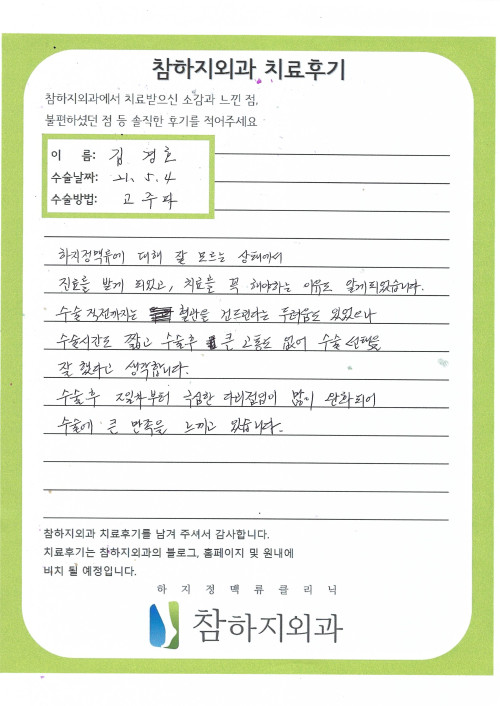 참하지외과 치료후기
참하지외과에서 치료받으신 소감과 느낀 점,
불편하셨던 점 등 솔직한 후기를 적어주세요
이 름: 김경호
수술날짜: 21. 5. 4
수술방법: 고주파
하지정맥류에 대해 잘 모르는 상태에서
진료를 받게 되었고, 치료를 꼭 해야하는 이유도 알게되었습니다.
수술 직전까지는 혈관을 건드린다는 두려움도 있었으나
수술시간도 짧고 수술후 큰 고통도 없어 수술 선택을
잘 했다고 생각합니다.
수술후 2일차부터 극심한 다리절임이 많이 완화되어
수술에 큰 만족을 느끼고 있습니다.
참하지외과 치료후기를 남겨 주셔서 감사합니다.
치료후기는 참하지외과의 블로그, 홈페이지 및 원내에
비치 될 예정입니다.
하지정맥류클리닉
참하지외과